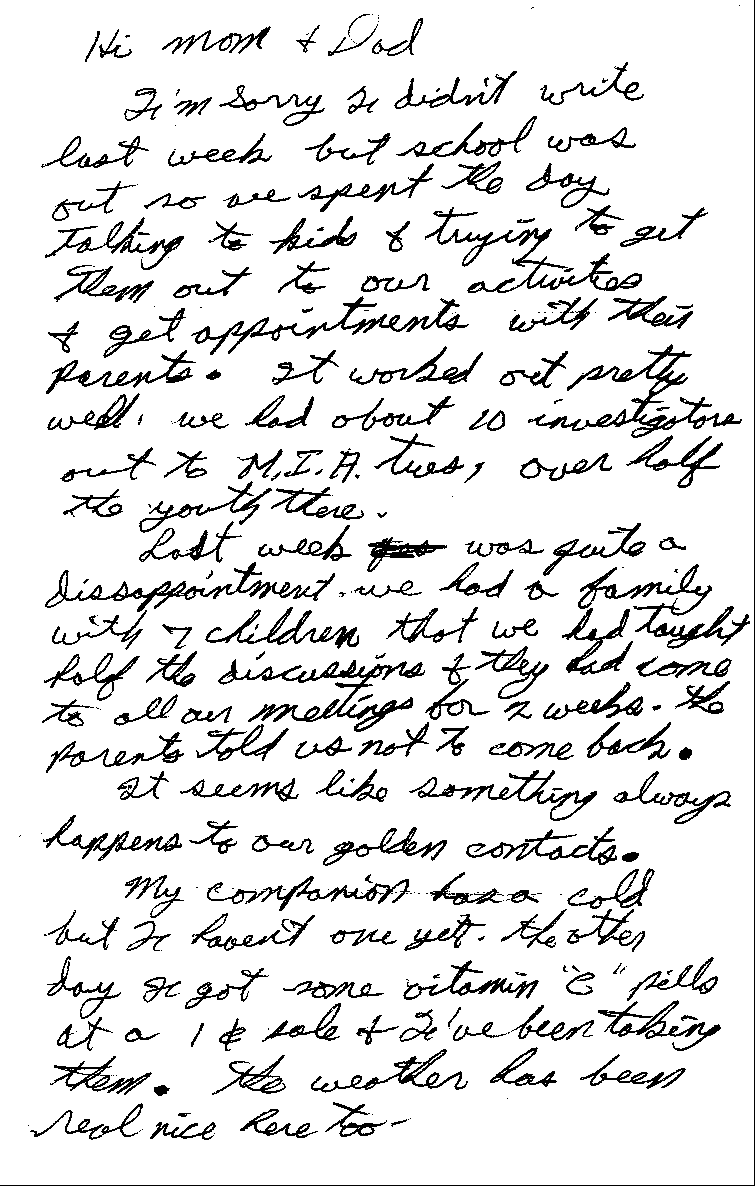 Hi mom & Dad
I'm sorry I didn't write
last week but school was
out so we spent the day
talking to kids & trying to get
them out to our activities
& get appointments with their
parents. It worked out pretty
well. we had about 10 investigators
out to M.I.A. tues, over half
the youth there.
Last week was quite a
dissappointment. we had a family
with 7 children that we had taught
half the discussions & they had come
to all our meetings for 2 weeks. the
parents told us not to come back.
It seems like something always
happens to our golden contacts.
My companion has a cold
but I havent one yet. the other
day I got some vitamin "C" pills
at a 1 ¢ sale & I've been taking
them. the weather has been
real nice here too-